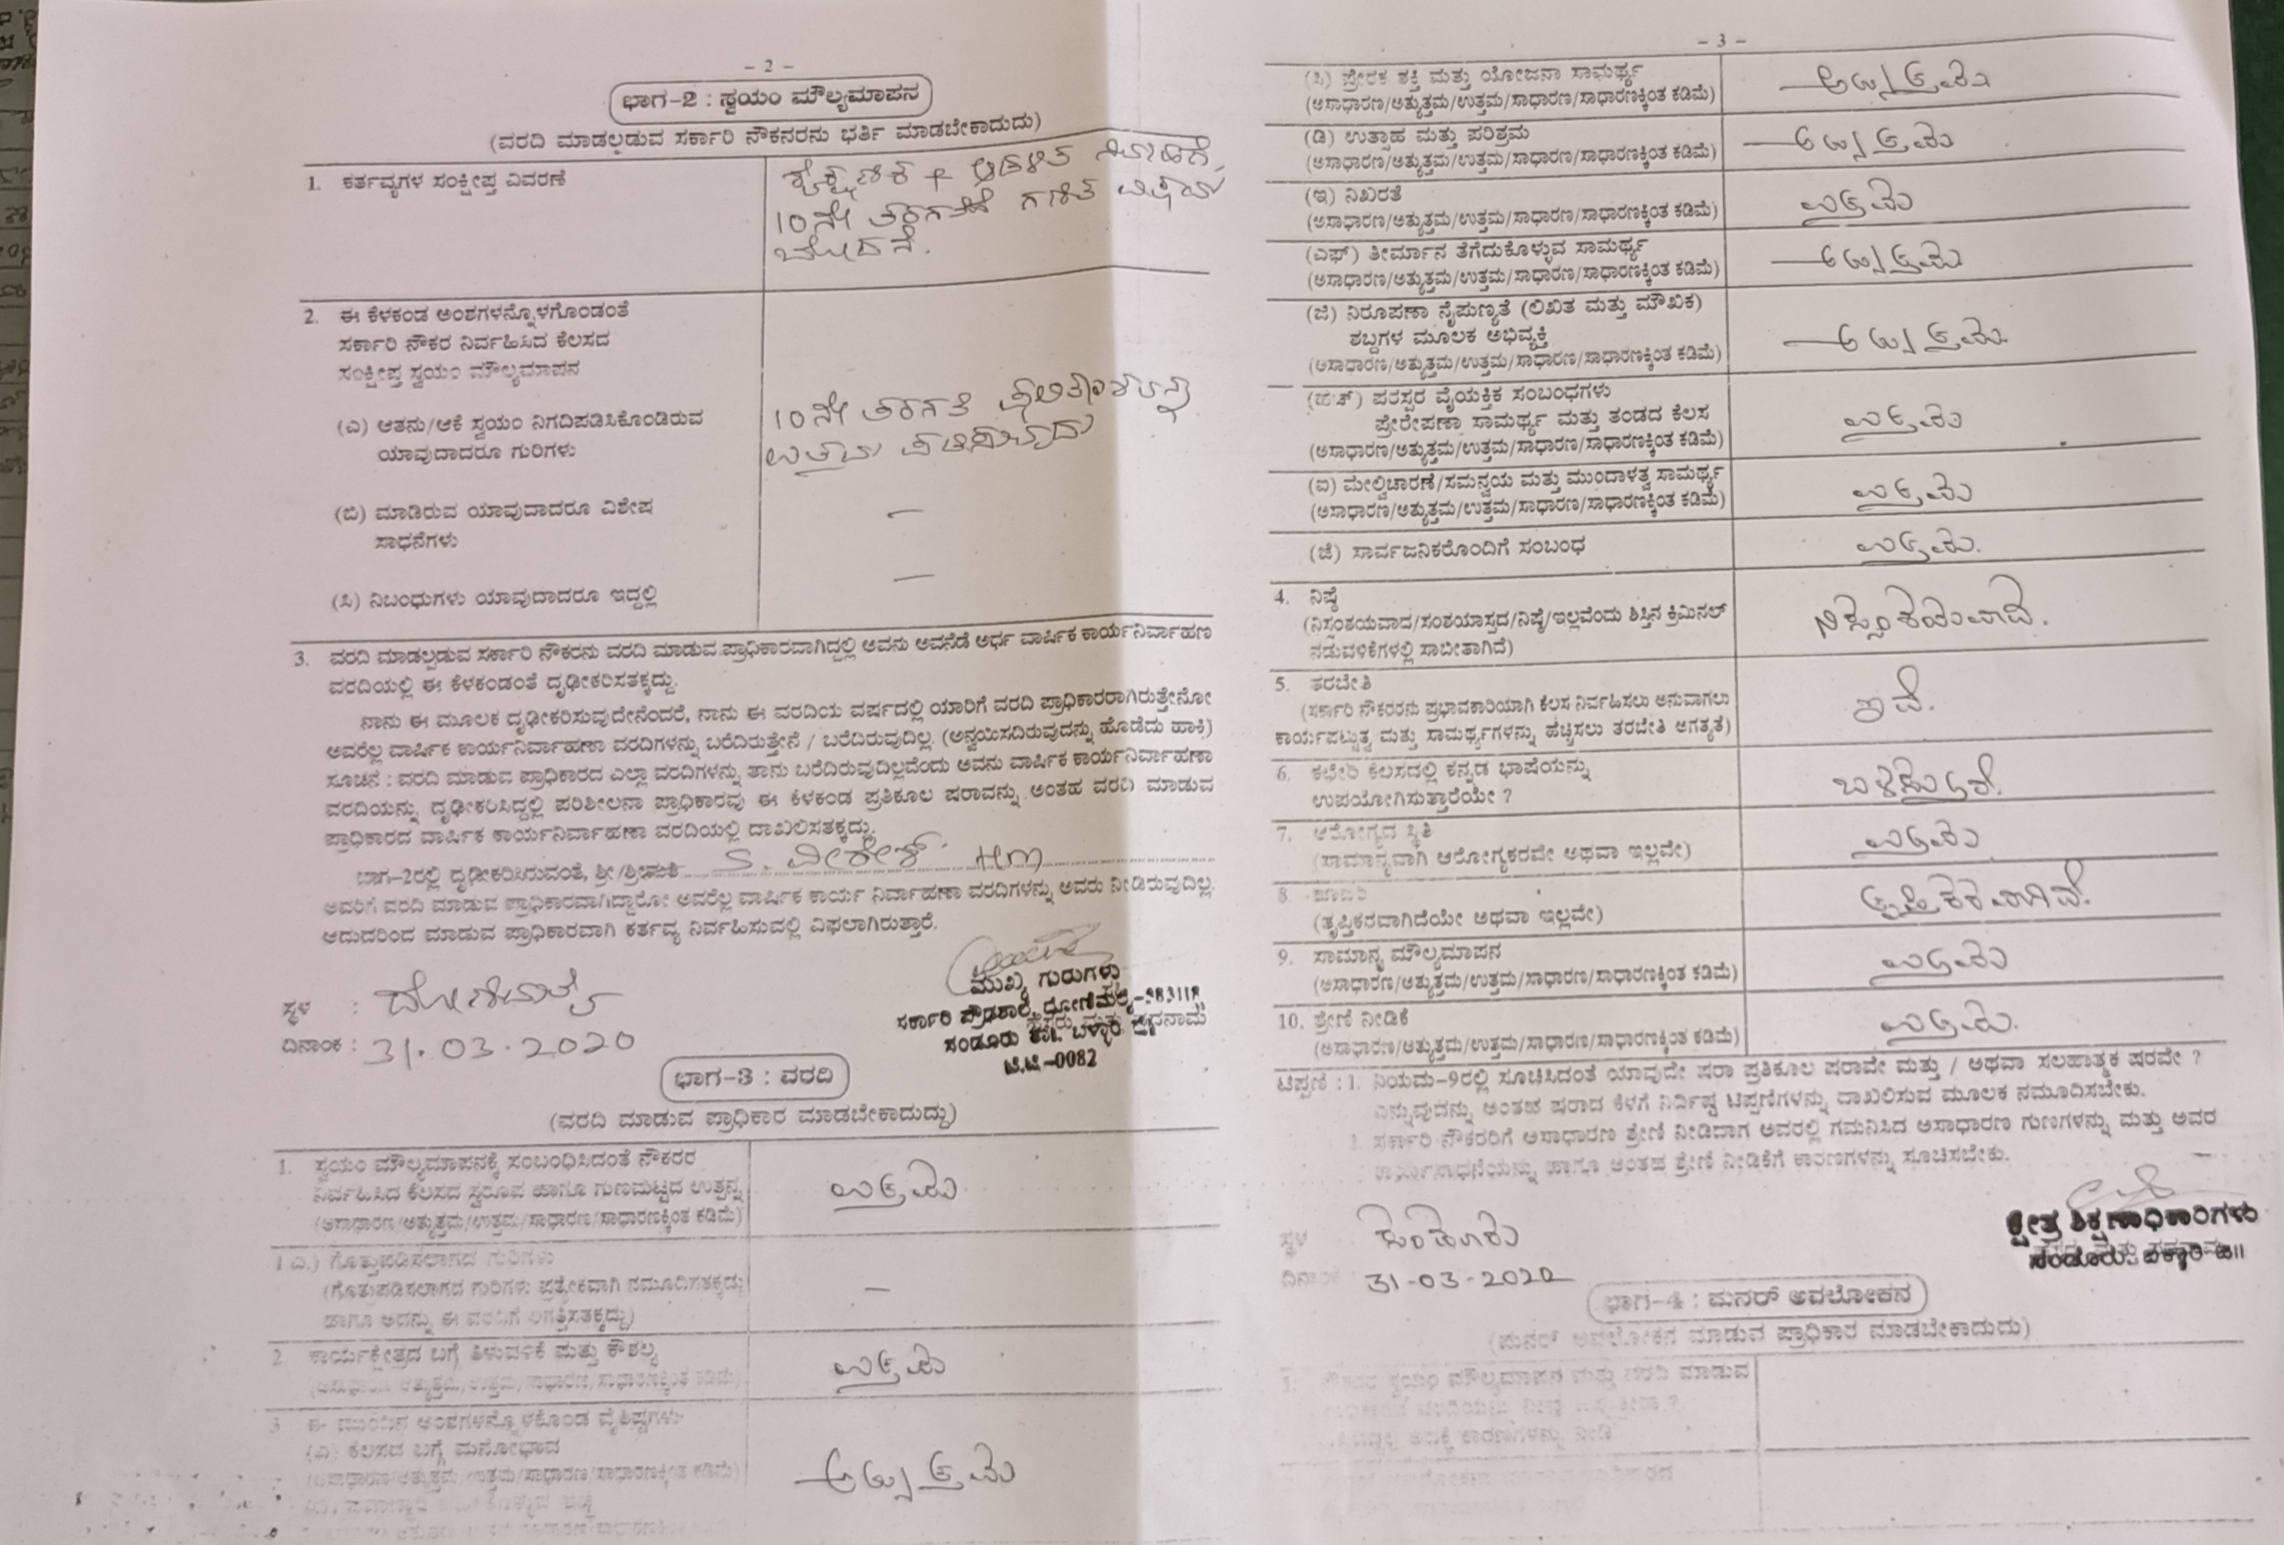 – 2 –
ಭಾಗ-2 : ಸ್ವಯಂ ಮೌಲ್ಯಮಾಪನ
(ವರದಿ ಮಾಡಲ್ಪಡುವ ಸರ್ಕಾರಿ ನೌಕರನು ಭರ್ತಿ ಮಾಡಬೇಕಾದುದು)
1. ಕರ್ತವ್ಯಗಳ ಸಂಕ್ಷೀಪ್ತ ವಿವರಣೆ
ಶೈಕ್ಷಣಿಕ + ಆಡಳಿತ
10ನೇ ತರಗತಿಗೆ ಗಣಿತ ವಿಷಯ
ಬೋಧನೆ.
2. ಈ ಕೆಳಕಂಡ ಅಂಶಗಳನ್ನೊಳಗೊಂಡಂತೆ
ಸರ್ಕಾರಿ ನೌಕರ ನಿರ್ವಹಿಸಿದ ಕೆಲಸದ
ಸಂಕ್ಷೀಪ್ತ ಸ್ವಯಂ ಮೌಲ್ಯಮಾಪನ
(ಎ) ಆತನು/ಆಕೆ ಸ್ವಯಂ ನಿಗದಿಪಡಿಸಿಕೊಂಡಿರುವ
ಯಾವುದಾದರೂ ಗುರಿಗಳು
10ನೇ ತರಗತಿ ಫಲಿತಾಂಶವನ್ನು
ಉತ್ತಮ ಪಡಿಸುವುದು
(ಬಿ) ಮಾಡಿರುವ ಯಾವುದಾದರೂ ವಿಶೇಷ
ಸಾಧನೆಗಳು
—
(ಸಿ) ನಿಬಂಧುಗಳು ಯಾವುದಾದರೂ ಇದ್ದಲ್ಲಿ
—
3. ವರದಿ ಮಾಡಲ್ಪಡುವ ಸರ್ಕಾರಿ ನೌಕರನು ವರದಿ ಮಾಡುವ ಪ್ರಾಧಿಕಾರವಾಗಿದ್ದಲ್ಲಿ ಅವನು ಅವನೆಡೆ ಅರ್ಧ ವಾರ್ಷಿಕ ಕಾರ್ಯನಿರ್ವಾಹಣ
ವರದಿಯಲ್ಲಿ ಈ ಕೆಳಕಂಡಂತೆ ದೃಢೀಕರಿಸತಕ್ಕದ್ದು.
ನಾನು ಈ ಮೂಲಕ ದೃಢೀಕರಿಸುವುದೇನೆಂದರೆ, ನಾನು ಈ ವರದಿಯ ವರ್ಷದಲ್ಲಿ ಯಾರಿಗೆ ವರದಿ ಪ್ರಾಧಿಕಾರರಾಗಿರುತ್ತೇನೋ
ಅವರೆಲ್ಲ ವಾರ್ಷಿಕ ಕಾರ್ಯನಿರ್ವಾಹಣಾ ವರದಿಗಳನ್ನು ಬರೆದಿರುತ್ತೇನೆ / ಬರೆದಿರುವುದಿಲ್ಲ. (ಅನ್ವಯಿಸದಿರುವುದನ್ನು ಹೊಡೆದು ಹಾಕಿ)
ಸೂಚನೆ : ವರದಿ ಮಾಡುವ ಪ್ರಾಧಿಕಾರದ ಎಲ್ಲಾ ವರದಿಗಳನ್ನು ತಾನು ಬರೆದಿರುವುದಿಲ್ಲವೆಂದು ಅವನು ವಾರ್ಷಿಕ ಕಾರ್ಯನಿರ್ವಾಹಣಾ
ವರದಿಯನ್ನು ದೃಢೀಕರಿಸಿದ್ದಲ್ಲಿ ಪರಿಶೀಲನಾ ಪ್ರಾಧಿಕಾರವು ಈ ಕೆಳಕಂಡ ಪ್ರತಿಕೂಲ ಷರಾವನ್ನು ಅಂತಹ ವರದಿ ಮಾಡುವ
ಪ್ರಾಧಿಕಾರದ ವಾರ್ಷಿಕ ಕಾರ್ಯನಿರ್ವಾಹಣಾ ವರದಿಯಲ್ಲಿ ದಾಖಲಿಸತಕ್ಕದ್ದು.
ಭಾಗ-2ರಲ್ಲಿ ದೃಢೀಕರಿಸಿರುವಂತೆ, ಶ್ರೀ/ಶ್ರೀಮತಿ S. ವೀರೇಶ್ HM
ಅವರಿಗೆ ವರದಿ ಮಾಡುವ ಪ್ರಾಧಿಕಾರವಾಗಿದ್ದಾರೋ ಅವರೆಲ್ಲ ವಾರ್ಷಿಕ ಕಾರ್ಯ ನಿರ್ವಾಹಣಾ ವರದಿಗಳನ್ನು ಅವರು ನೀಡಿರುವುದಿಲ್ಲ.
ಆದುದರಿಂದ ಮಾಡುವ ಪ್ರಾಧಿಕಾರವಾಗಿ ಕರ್ತವ್ಯ ನಿರ್ವಹಿಸುವಲ್ಲಿ ವಿಫಲಾಗಿರುತ್ತಾರೆ.
ಮುಖ್ಯ ಗುರುಗಳು
ಸ್ಥಳ : ದೋಣಿಮಲೈ
ಸರ್ಕಾರಿ ಪ್ರೌಢಶಾಲೆ, ದೋಣಿಮಲೈ-583118
ಸಂಡೂರು ತಾ. ಬಳ್ಳಾರಿ ಜಿಲ್ಲೆ
ದಿನಾಂಕ : 31.03.2020
ಟಿ.ಟಿ-0082
ಭಾಗ-3 : ವರದಿ
(ವರದಿ ಮಾಡುವ ಪ್ರಾಧಿಕಾರ ಮಾಡಬೇಕಾದುದ್ದು)
1. ಸ್ವಯಂ ಮೌಲ್ಯಮಾಪನಕ್ಕೆ ಸಂಬಂಧಿಸಿದಂತೆ ನೌಕರರ
ನಿರ್ವಹಿಸಿದ ಕೆಲಸದ ಸ್ವರೂಪ ಹಾಗೂ ಗುಣಮಟ್ಟದ ಉತ್ಪನ್ನ
(ಅಸಾಧಾರಣ/ಅತ್ಯುತ್ತಮ/ಉತ್ತಮ/ಸಾಧಾರಣ/ಸಾಧಾರಣಕ್ಕಿಂತ ಕಡಿಮೆ)
ಉತ್ತಮ
1 ಎ.) ಗೊತ್ತುಪಡಿಸಲಾಗದ ಗುರಿಗಳು
(ಗೊತ್ತುಪಡಿಸಲಾಗದ ಗುರಿಗಳು ಪ್ರತ್ಯೇಕವಾಗಿ ನಮೂದಿಸತಕ್ಕದ್ದು
ಹಾಗೂ ಅದನ್ನು ಈ ವರದಿಗೆ ಲಗತ್ತಿಸತಕ್ಕದ್ದು)
—
2. ಕಾರ್ಯಕ್ಷೇತ್ರದ ಬಗ್ಗೆ ತಿಳುವಳಿಕೆ ಮತ್ತು ಕೌಶಲ್ಯ
(ಅಸಾಧಾರಣ/ಅತ್ಯುತ್ತಮ/ಉತ್ತಮ/ಸಾಧಾರಣ/ಸಾಧಾರಣಕ್ಕಿಂತ ಕಡಿಮೆ)
ಉತ್ತಮ
3 ಈ ಮುಂದಿನ ಅಂಶಗಳನ್ನೊಳಕೊಂಡ ವೈಶಿಷ್ಟ್ಯಗಳು
(ಎ) ಕೆಲಸದ ಬಗ್ಗೆ ಮನೋಭಾವ
(ಅಸಾಧಾರಣ/ಅತ್ಯುತ್ತಮ/ಉತ್ತಮ/ಸಾಧಾರಣ/ಸಾಧಾರಣಕ್ಕಿಂತ ಕಡಿಮೆ)
ಅತ್ಯುತ್ತಮ
– 3 –
(ಸಿ) ಪ್ರೇರಕ ಶಕ್ತಿ ಮತ್ತು ಯೋಜನಾ ಸಾಮರ್ಥ್ಯ
(ಅಸಾಧಾರಣ/ಅತ್ಯುತ್ತಮ/ಉತ್ತಮ/ಸಾಧಾರಣ/ಸಾಧಾರಣಕ್ಕಿಂತ ಕಡಿಮೆ)
ಅತ್ಯುತ್ತಮ
(ಡಿ) ಉತ್ಸಾಹ ಮತ್ತು ಪರಿಶ್ರಮ
(ಅಸಾಧಾರಣ/ಅತ್ಯುತ್ತಮ/ಉತ್ತಮ/ಸಾಧಾರಣ/ಸಾಧಾರಣಕ್ಕಿಂತ ಕಡಿಮೆ)
ಅತ್ಯುತ್ತಮ
(ಇ) ನಿಖರತೆ
(ಅಸಾಧಾರಣ/ಅತ್ಯುತ್ತಮ/ಉತ್ತಮ/ಸಾಧಾರಣ/ಸಾಧಾರಣಕ್ಕಿಂತ ಕಡಿಮೆ)
ಉತ್ತಮ
(ಎಫ್) ತೀರ್ಮಾನ ತೆಗೆದುಕೊಳ್ಳುವ ಸಾಮರ್ಥ್ಯ
(ಅಸಾಧಾರಣ/ಅತ್ಯುತ್ತಮ/ಉತ್ತಮ/ಸಾಧಾರಣ/ಸಾಧಾರಣಕ್ಕಿಂತ ಕಡಿಮೆ)
ಅತ್ಯುತ್ತಮ
(ಜಿ) ನಿರೂಪಣಾ ನೈಪುಣ್ಯತೆ (ಲಿಖಿತ ಮತ್ತು ಮೌಖಿಕ)
ಶಬ್ದಗಳ ಮೂಲಕ ಅಭಿವ್ಯಕ್ತಿ
(ಅಸಾಧಾರಣ/ಅತ್ಯುತ್ತಮ/ಉತ್ತಮ/ಸಾಧಾರಣ/ಸಾಧಾರಣಕ್ಕಿಂತ ಕಡಿಮೆ)
ಅತ್ಯುತ್ತಮ.
(ಹೆಚ್) ಪರಸ್ಪರ ವೈಯಕ್ತಿಕ ಸಂಬಂಧಗಳು
ಪ್ರೇರೇಪಣಾ ಸಾಮರ್ಥ್ಯ ಮತ್ತು ತಂಡದ ಕೆಲಸ
(ಅಸಾಧಾರಣ/ಅತ್ಯುತ್ತಮ/ಉತ್ತಮ/ಸಾಧಾರಣ/ಸಾಧಾರಣಕ್ಕಿಂತ ಕಡಿಮೆ)
ಉತ್ತಮ
(ಐ) ಮೇಲ್ವಿಚಾರಣೆ/ಸಮನ್ವಯ ಮತ್ತು ಮುಂದಾಳತ್ವ ಸಾಮರ್ಥ್ಯ
(ಅಸಾಧಾರಣ/ಅತ್ಯುತ್ತಮ/ಉತ್ತಮ/ಸಾಧಾರಣ/ಸಾಧಾರಣಕ್ಕಿಂತ ಕಡಿಮೆ)
ಉತ್ತಮ
(ಜೆ) ಸಾರ್ವಜನಿಕರೊಂದಿಗೆ ಸಂಬಂಧ
ಉತ್ತಮ.
4. ನಿಷ್ಠೆ
(ನಿಸ್ಸಂಶಯವಾದ/ಸಂಶಯಾಸ್ಪದ/ನಿಷ್ಠೆ/ಇಲ್ಲವೆಂದು ಶಿಸ್ತಿನ ಕ್ರಿಮಿನಲ್
ನಡುವಳಿಕೆಗಳಲ್ಲಿ ಸಾಬೀತಾಗಿದೆ)
5. ತರಬೇತಿ
(ಸರ್ಕಾರಿ ನೌಕರರನು ಪ್ರಭಾವಕಾರಿಯಾಗಿ ಕೆಲಸ ನಿರ್ವಹಿಸಲು ಅನುವಾಗಲು
ಕಾರ್ಯಪಟ್ಟುತ್ವ ಮತ್ತು ಸಾಮರ್ಥ್ಯಗಳನ್ನು ಹೆಚ್ಚಿಸಲು ತರಬೇತಿ ಅಗತ್ಯತೆ)
ಇದೆ.
6. ಕಛೇರಿ ಕೆಲಸದಲ್ಲಿ ಕನ್ನಡ ಭಾಷೆಯನ್ನು
ಉಪಯೋಗಿಸುತ್ತಾರೆಯೇ ?
ಬಳಸುತ್ತಾರೆ.
7. ಆರೋಗ್ಯದ ಸ್ಥಿತಿ
(ಸಾಮಾನ್ಯವಾಗಿ ಆರೋಗ್ಯಕರವೇ ಅಥವಾ ಇಲ್ಲವೇ)
ಉತ್ತಮ
8.
(ತೃಪ್ತಿಕರವಾಗಿದೆಯೇ ಅಥವಾ ಇಲ್ಲವೇ)
ತೃಪ್ತಿಕರವಾಗಿದೆ.
9. ಸಾಮಾನ್ಯ ಮೌಲ್ಯಮಾಪನ
(ಅಸಾಧಾರಣ/ಅತ್ಯುತ್ತಮ/ಉತ್ತಮ/ಸಾಧಾರಣ/ಸಾಧಾರಣಕ್ಕಿಂತ ಕಡಿಮೆ)
ಉತ್ತಮ
10. ಶ್ರೇಣಿ ನೀಡಿಕೆ
(ಅಸಾಧಾರಣ/ಅತ್ಯುತ್ತಮ/ಉತ್ತಮ/ಸಾಧಾರಣ/ಸಾಧಾರಣಕ್ಕಿಂತ ಕಡಿಮೆ)
ಉತ್ತಮ.
ಟಿಪ್ಪಣಿ : 1. ನಿಯಮ-9ರಲ್ಲಿ ಸೂಚಿಸಿದಂತೆ ಯಾವುದೇ ಷರಾ ಪ್ರತಿಕೂಲ ಷರಾವೇ ಮತ್ತು / ಅಥವಾ ಸಲಹಾತ್ಮಕ ಷರವೇ ?
ಎನ್ನುವುದನ್ನು ಅಂತಹ ಷರಾದ ಕೆಳಗೆ ನಿರ್ದಿಷ್ಟ ಟಿಪ್ಪಣಿಗಳನ್ನು ದಾಖಲಿಸುವ ಮೂಲಕ ನಮೂದಿಸಬೇಕು.
2. ಸರ್ಕಾರಿ ನೌಕರರಿಗೆ ಅಸಾಧಾರಣ ಶ್ರೇಣಿ ನೀಡಿದಾಗ ಅವರಲ್ಲಿ ಗಮನಿಸಿದ ಅಸಾಧಾರಣ ಗುಣಗಳನ್ನು ಮತ್ತು ಅವರ
ಕಾರ್ಯಸಾಧನೆಯನ್ನು ಹಾಗೂ ಅಂತಹ ಶ್ರೇಣಿ ನೀಡಿಕೆಗೆ ಕಾರಣಗಳನ್ನು ಸೂಚಿಸಬೇಕು.
ಕ್ಷೇತ್ರ ಶಿಕ್ಷಣಾಧಿಕಾರಿಗಳು
ಸ್ಥಳ ಸಂಡೂರು
ಸಂಡೂರು. ಬಳ್ಳಾರಿ ಜಿ||
ದಿನಾಂಕ 31-03-2020
ಭಾಗ-4 : ಮನರ್ ಅವಲೋಕನ
(ಪುನರ್ ಅವಲೋಕನ ಮಾಡುವ ಪ್ರಾಧಿಕಾರ ಮಾಡಬೇಕಾದುದು)
1. ಸ್ವಯಂ ಮೌಲ್ಯಮಾಪನ ಮತ್ತು ವರದಿ ಮಾಡುವ